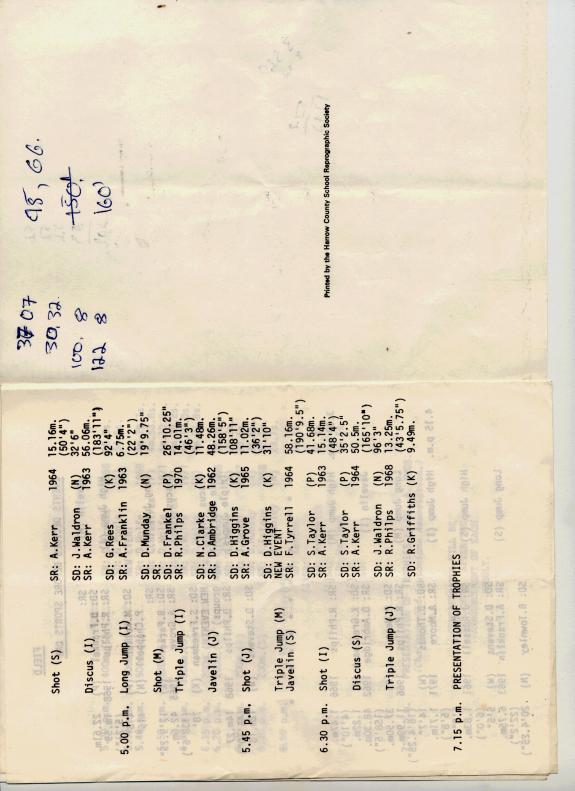 Shot (S) SR: A.Kerr 1964 15.16m.
(50'4")
SD: J.Waldron (N) 32'6"
Discus (I) SR: A.Kerr 1963 56.06m.
(183'11")
SD: G.Rees (K) 92'4"
5.00 p.m. Long Jump (I) SR: A.Franklin 1963 6.75m.
(22'2")
SD: D.Munday (N) 19'9.75"
Shot (M) SR:
SD: D.Frankel (P) 26'10.25"
Triple Jump (I) SR: R.Philps 1970 14.01m.
(46'3")
SD: N.Clarke (K) 11.48m.
Javelin (J) SR: D.Ambridge 1962 48.26m.
(158'5")
SD: D.Higgins (K) 108'11"
5.45 p.m. Shot (J) SR: A.Grove 1965 11.02m.
(36'2")
SD: D.Higgins (K) 31'10"
Triple Jump (M) NEW EVENT
Javelin (S) SR: F.Tyrrell 1964 58.16m.
(190'9.5")
SD: S.Taylor (P) 41.68m.
6.30 p.m. Shot (I) SR: A.Kerr 1963 15.14m.
(48'4")
SD: S.Taylor (P) 35'2.5"
Discus (S) SR: A.Kerr 1964 50.5m.
(165'10")
SD: J.Waldron (N) 96'3"
Triple Jump (J) SR: R.Philps 1968 13.25m.
(43'5.75")
SD: R.Griffiths (K) 9.49m.
7.15 p.m. PRESENTATION OF TROPHIES
07 95, 66.
30,32.
100, 8 150,
122 8 160
Printed by the Harrow County School Reprographic Society